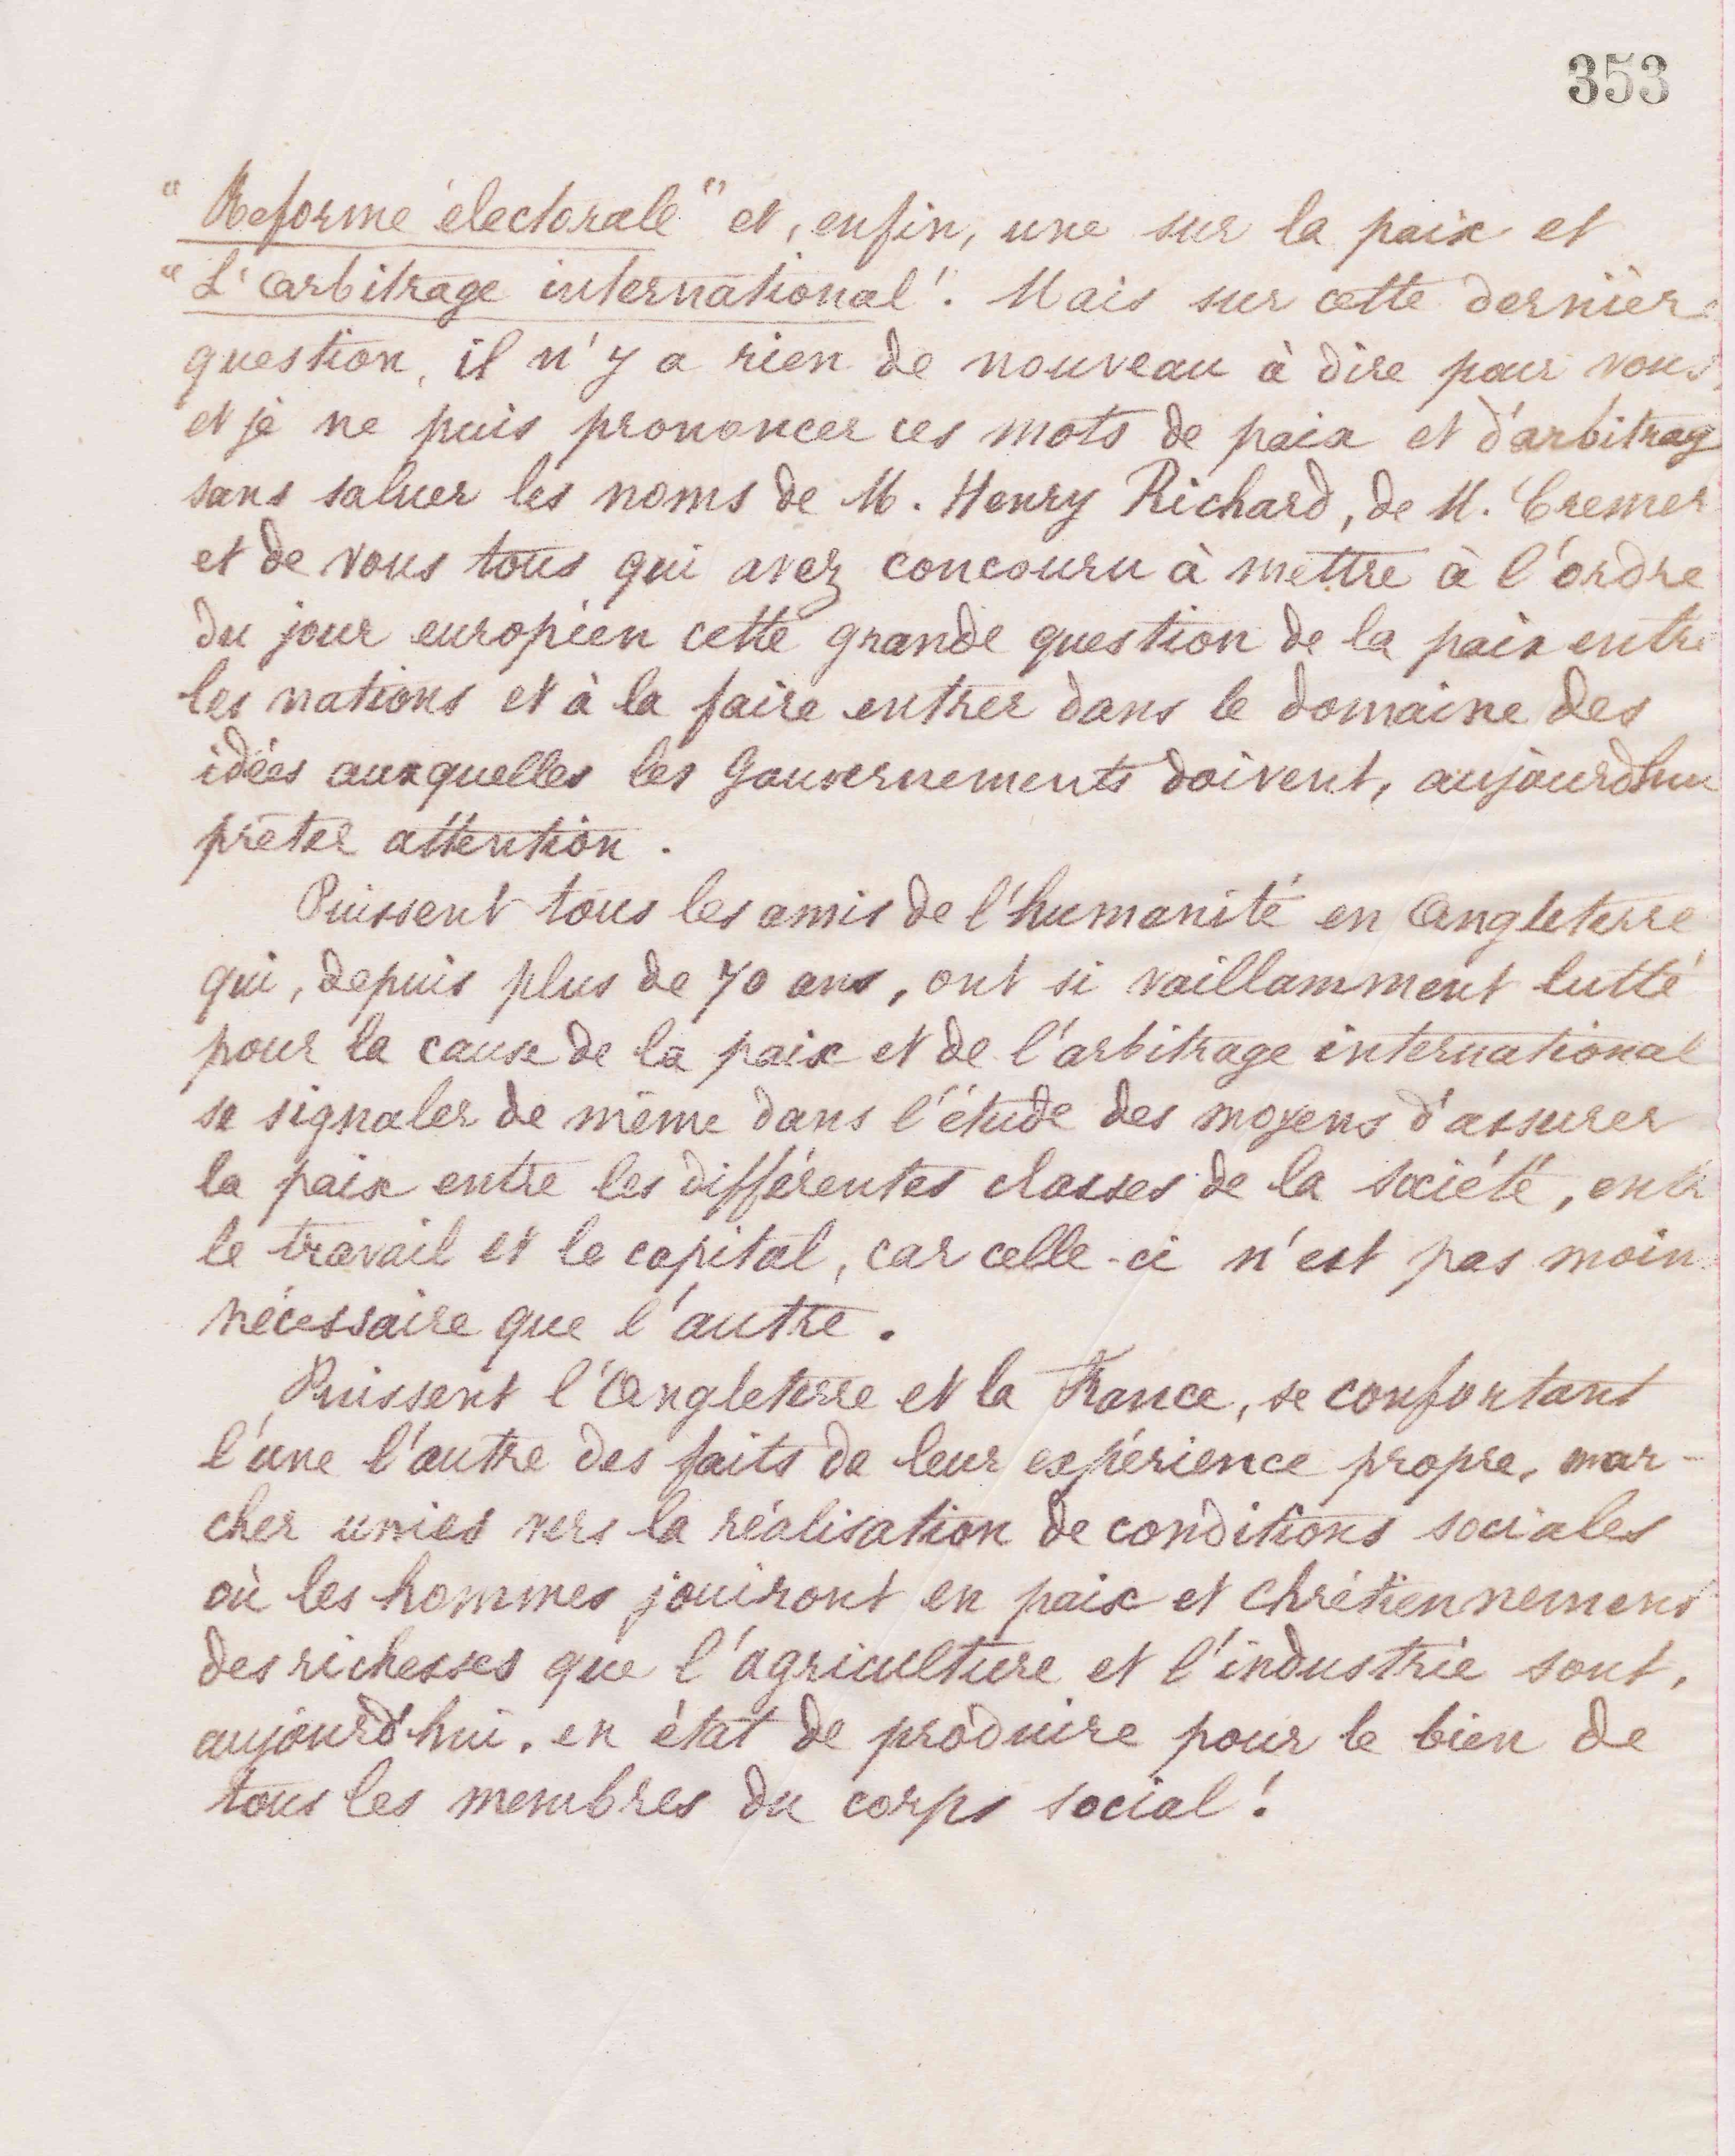 353
"Réforme électorale" et, enfin, une sur la paix et
"L'arbitrage international". Mais sur cette dernière
question, il n'y a rien de nouveau à dire pour vous,
et je ne puis prononcer ces mots de paix et d'arbitrag
sans saluer les noms de M. Henry Richard, de M. Cremer
et de vous tous qui avez concouru à mettre à l'ordre
du jour européen cette grande question de la paix entre
les nations et à la faire entrer dans le domaine des
idées auxquelles les Gouvernements doivent, aujourd'hui
prêter attention.
Puissent tous les amis de l'humanité en Angleterre
qui, depuis plus de 70 ans, ont si vaillamment lutté
pour la cause de la paix et de l'arbitrage international
se signaler de même dans l'étude des moyens d'assurer
la paix entre les différentes classes de la société, entr
le travail et le capital, car celle-ci n'est pas moin
nécessaire que l'autre.
Puissent l'Angleterre et la France, se confortant
l'une l'autre des faits de leur expérience propre, mar-
cher unies vers la réalisation de conditions sociales
où les hommes jouiront en paix et chrétiennement
des richesses que l'agriculture et l'industrie sont,
aujourd'hui, en état de produire pour le bien de
tous les membres du corps social!